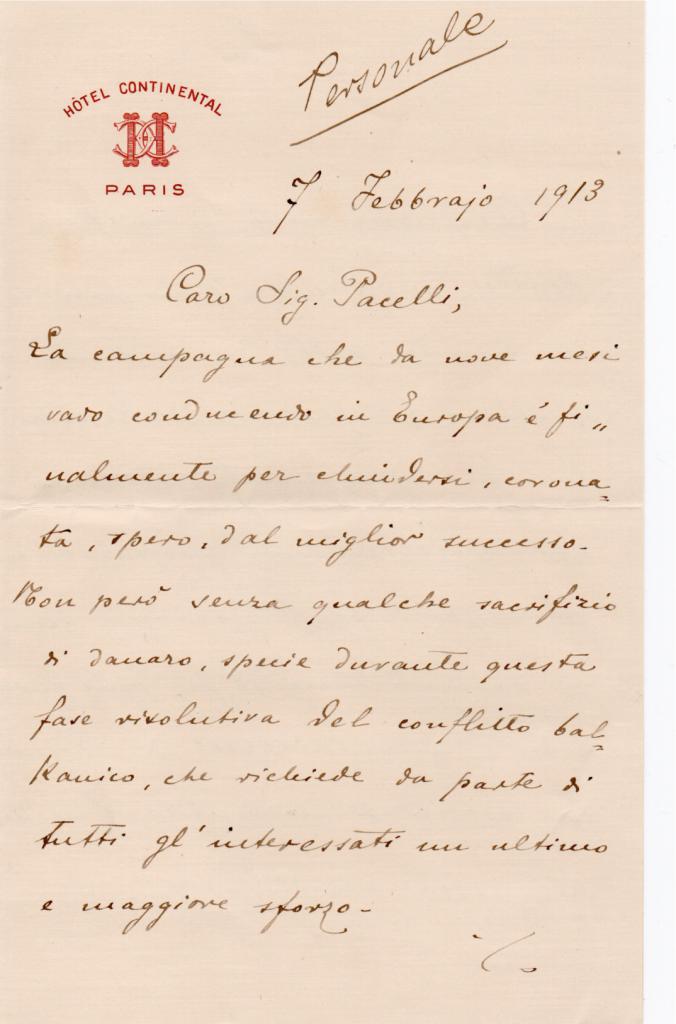 Personale
HÔTEL CONTINENTAL
PARIS
7 Febbrajo 1913
Caro Sig. Pacelli,
La campagna che da nove mesi
vado conducendo in Europa é fi„
nalmente per chiudersi, corona=
ta, spero, dal miglior successo.
Non però senza qualche sacrifizio
di danaro, specie durante questa
fase risolutiva del conflitto bal=
kanico, che richiede da parte di
tutti gl' interessati un ultimo
e maggiore sforzo.